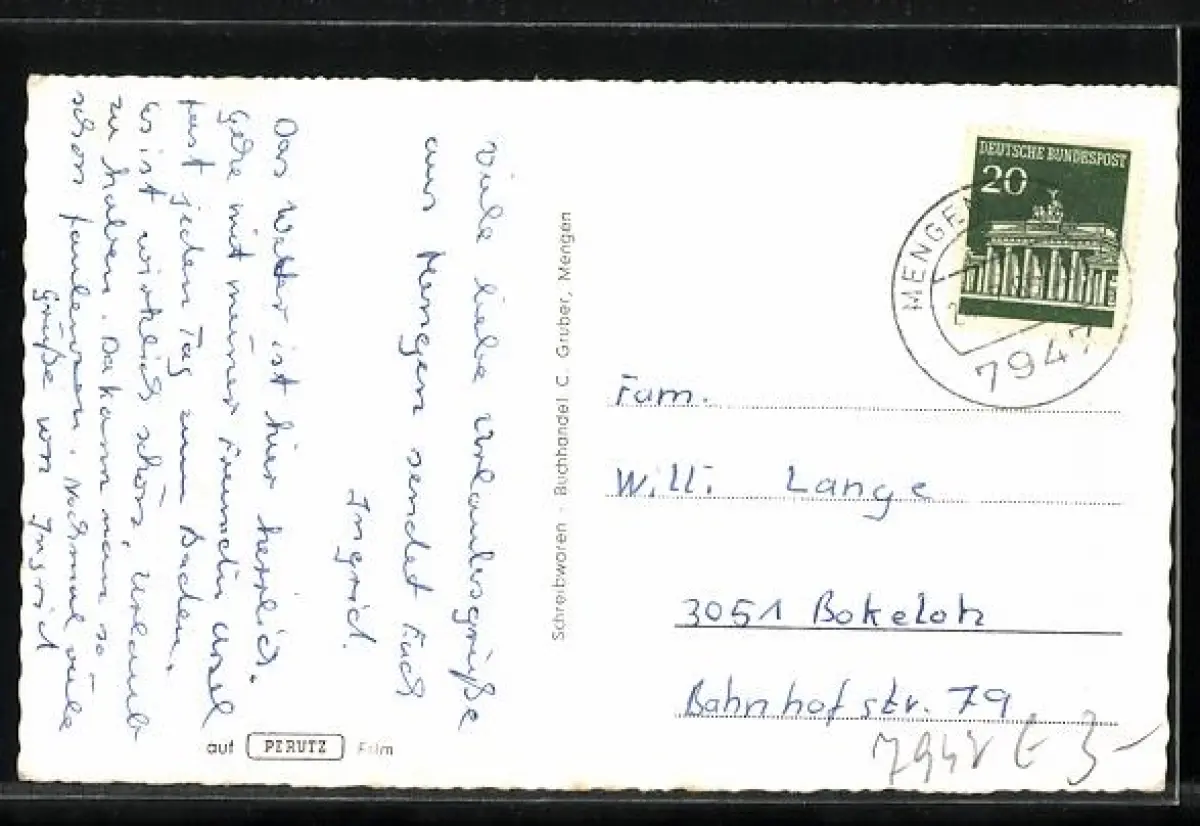 Viele liebe Urlaubsgrüße
aus Mengen sendet Euch
Ingrid.
Das Wetter ist hier herrlich.
gehe mit meiner Freundin Ursel
fast jeden Tag zum Baden.
Es ist wirklich schön, Urlaub
zu haben. Da kann man so
schön faulenzen. Nochmal viele
Grüße von Ingrid
auf PERUTZ Film
Schreibwaren - Buchhandel C. Gruber, Mengen
DEUTSCHE BUNDESPOST
20
MENGEN
7947
Fam.
Willi Lange
3051 Bokeloh
Bahnhofstr. 79
3-